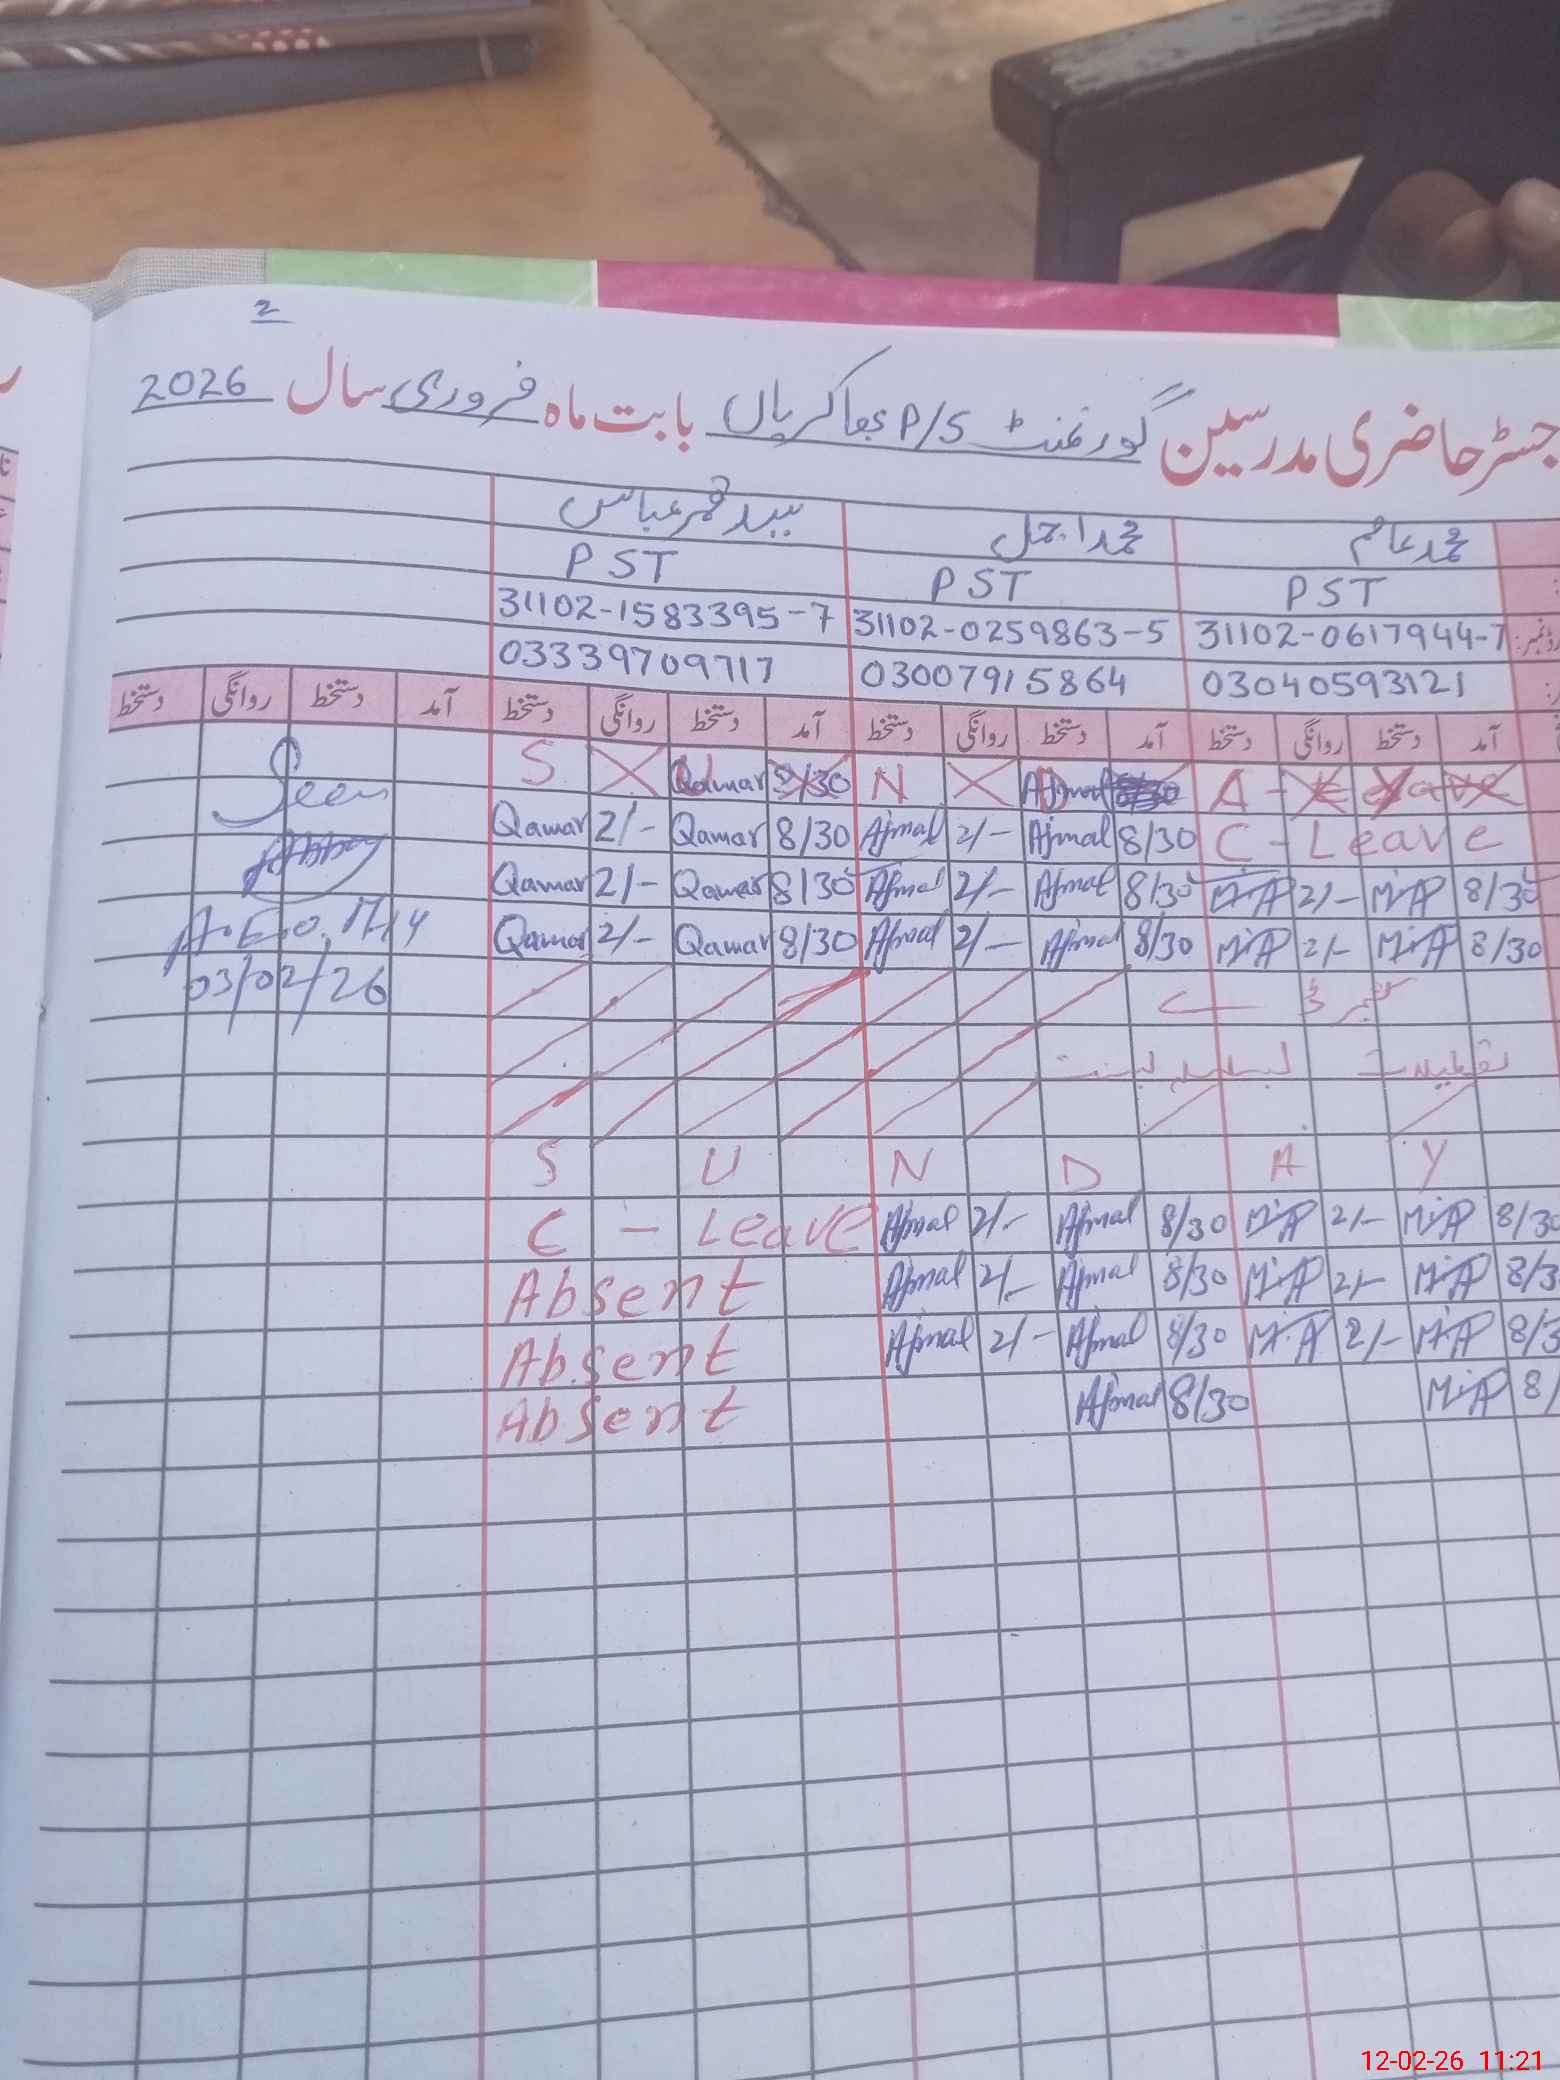 2
جسٹر حاضری مدرسین گورنمنٹ P/S بھاکریاں بابت ماہ فروری سال 2026
محمد عالم محمد اجمل سید قمر عباس
PST PST PST
31102-1583395-7 31102-0259863-5 31102-0617944-7
03339709717 03007915864 03040593121
آمد دستخط روانگی دستخط آمد دستخط روانگی دستخط آمد دستخط روانگی دستخط آمد دستخط روانگی دستخط
Seen S Qamar 8/30 N Ajmal 8/30 A - Leave
Qamar 2/- Qamar 8/30 Ajmal 2/- Ajmal 8/30 C - Leave
Qamar 2/- Qamar 8/30 Ajmal 2/- Ajmal 8/30 M.A 2/- M.A 8/30
A.E.O. Qamar 2/- Qamar 8/30 Ajmal 2/- Ajmal 8/30 M.A 2/- M.A 8/30
03/02/26
تعطیلات بسلسلہ بسنت
S U N D A Y
C - Leave Ajmal 2/- Ajmal 8/30 M.A 2/- M.A 8/30
Absent Ajmal 2/- Ajmal 8/30 M.A 2/- M.A 8/3
Absent Ajmal 2/- Ajmal 8/30 M.A 2/- M.A 8/3
Absent Ajmal 8/30 M.A 8/
12-02-26 11:21